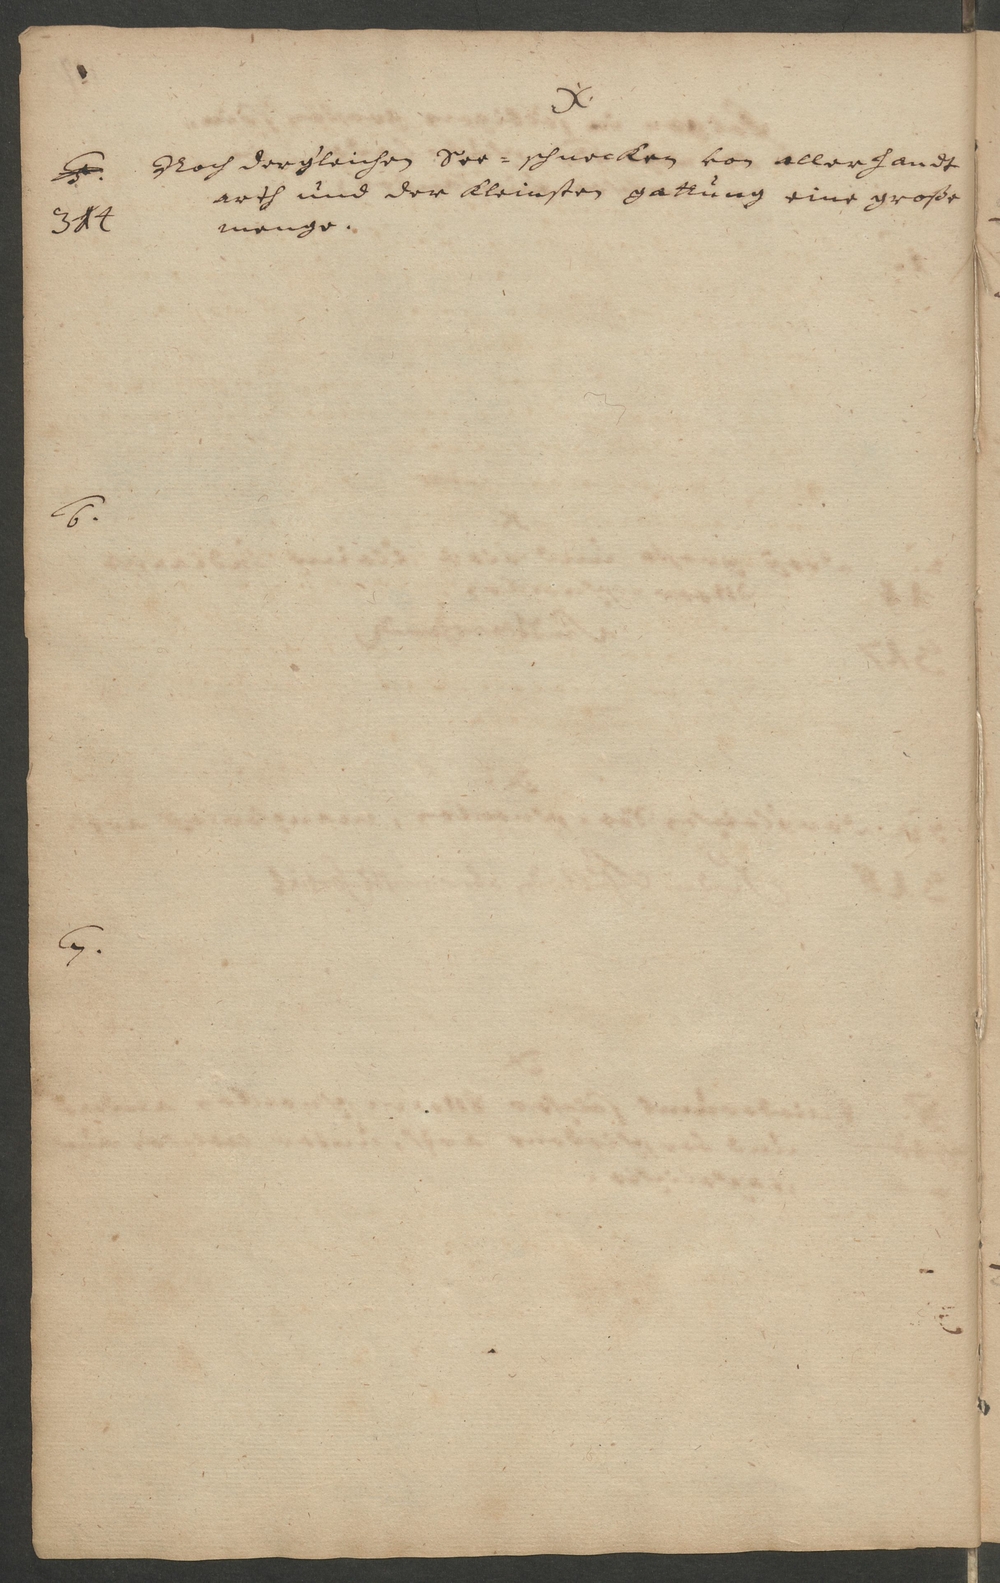 X.
5. Noch dergleichen See=schnecken von allerhandt
314 arth und der kleinsten gattung eine große
menge.
6.
7.